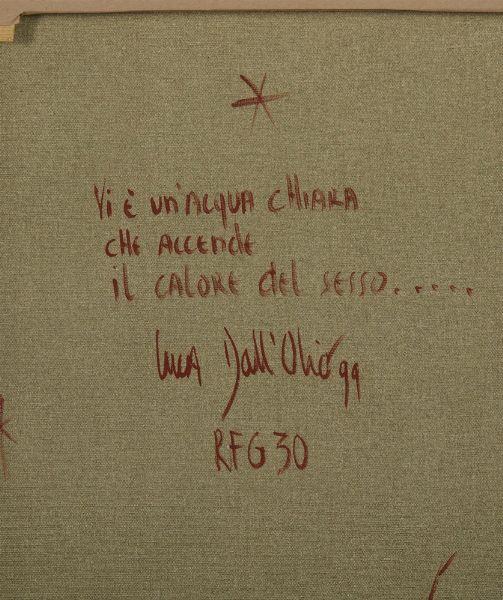 Vi è un'acqua chiara
che accende
il calore del sesso.....
Luca Dall'Olio 99
RFG 30